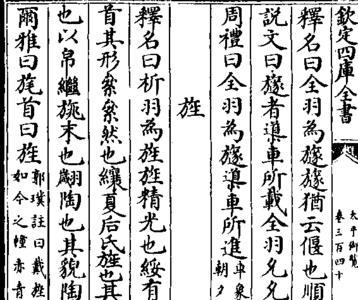 欽定四庫全書
太平御覽
卷三百四十
釋名曰全羽為旞旞猶云偃也順
說文曰旞者導車所載全羽允允
周禮曰全羽為旞導車所進
車象
朝夕
旌
釋名曰析羽為旌旌精光也綏有
首其形粲粲然也纕夏后氏旌也其
也以帛繼旐末也翿陶也其貌陶
爾雅曰旄首曰旌
郭璞註曰戴旄
如今之幢亦青